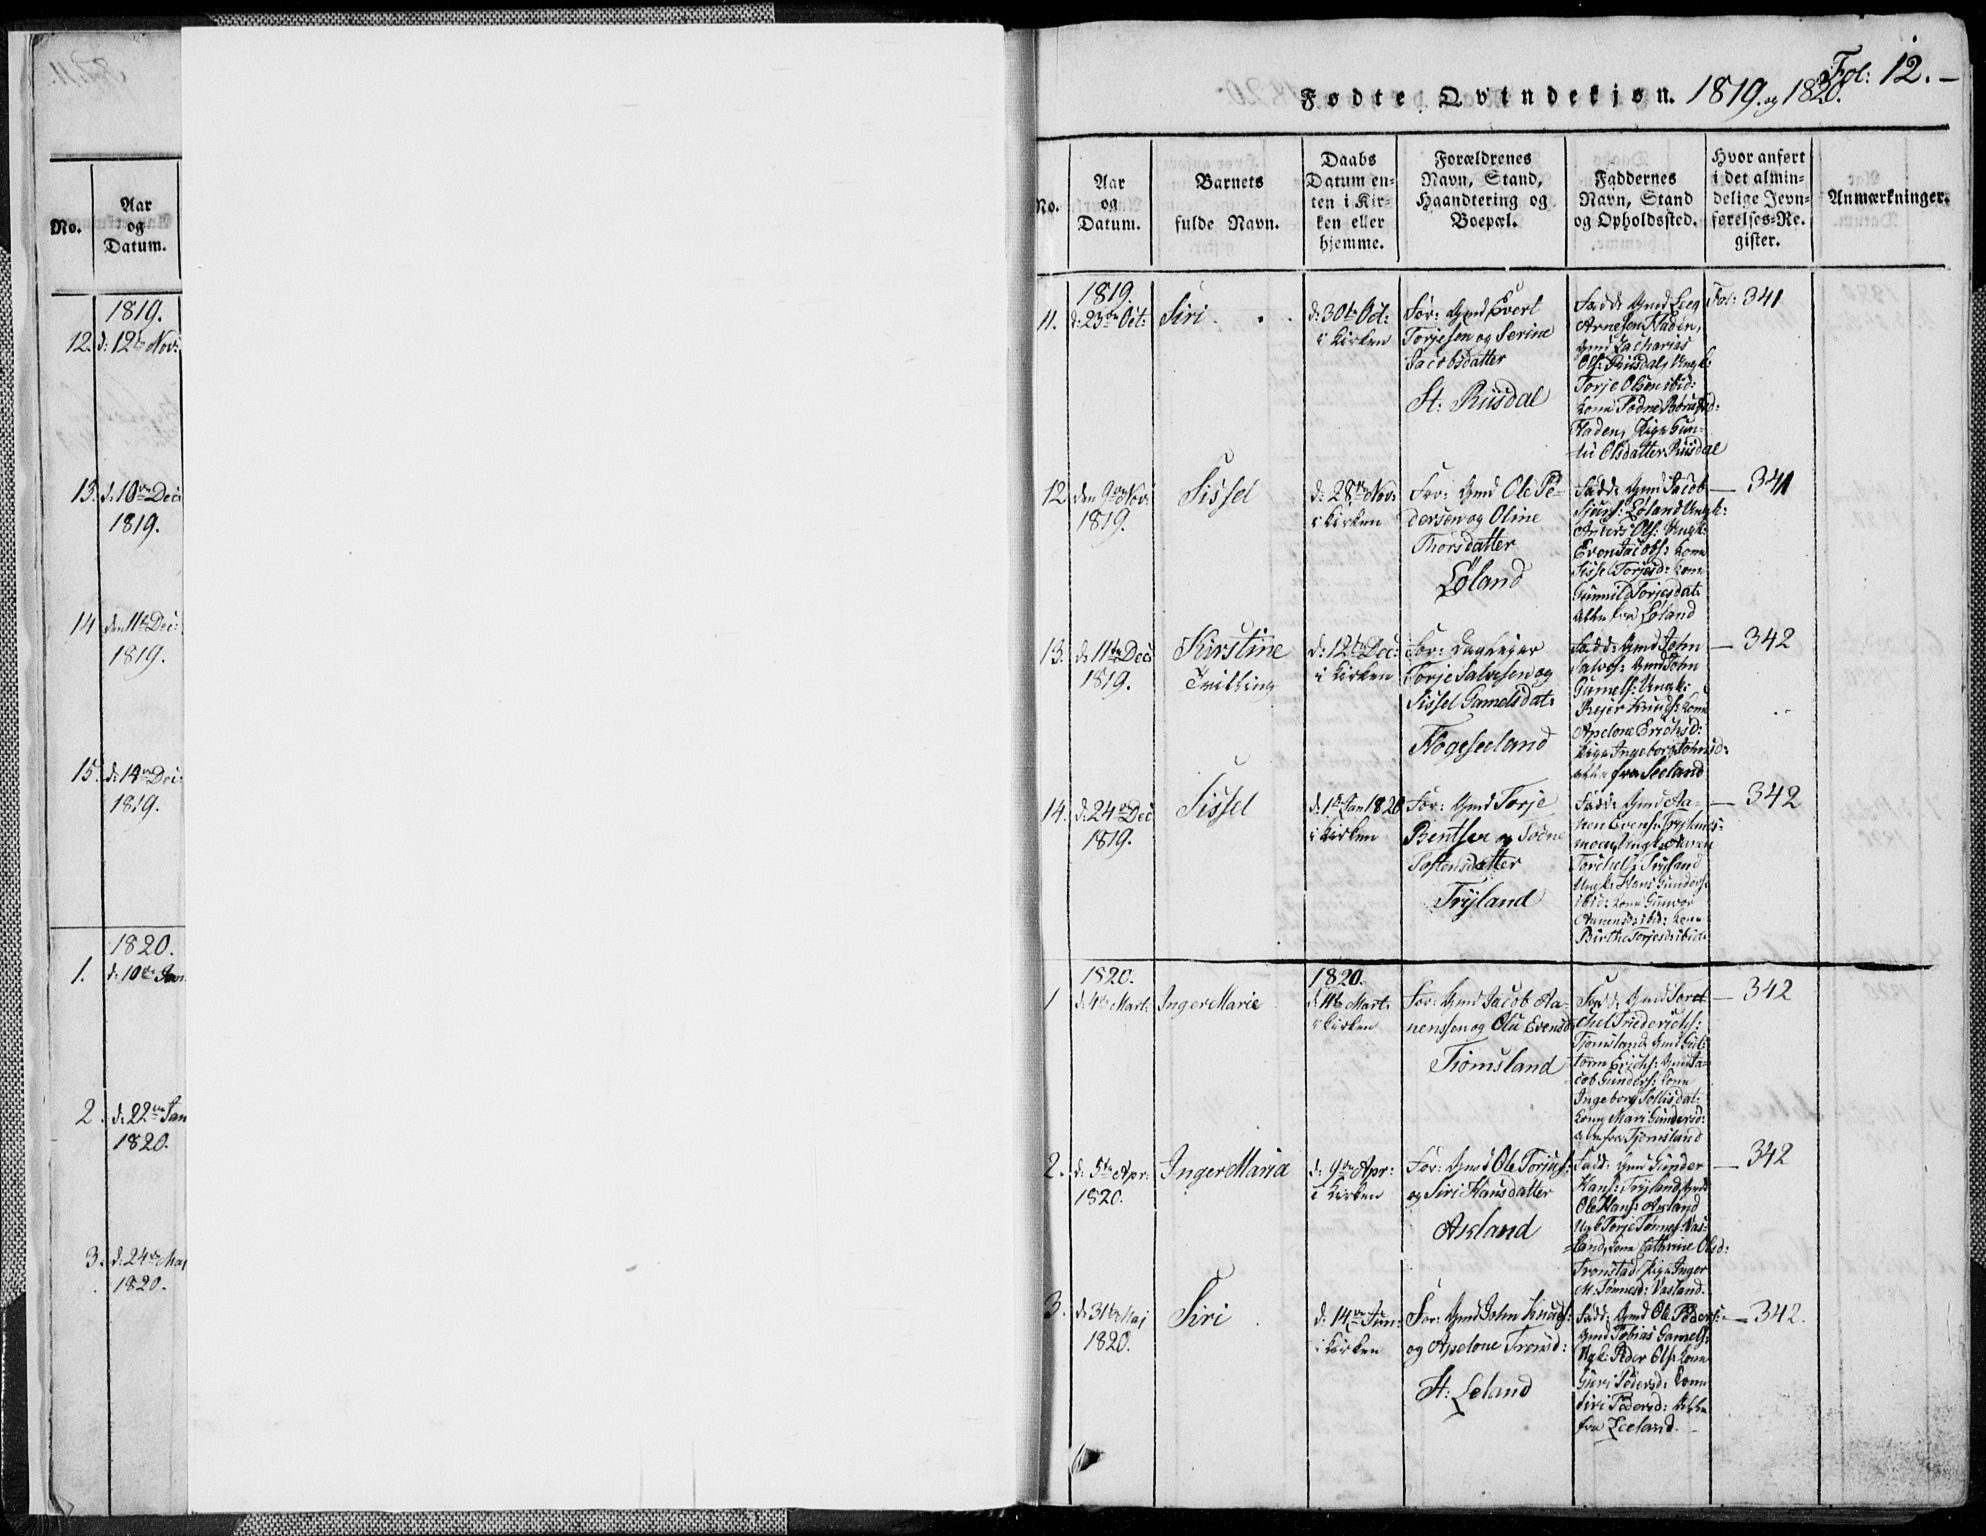 Fol: 12.
Fødte Qvindekjøn. 1819. og 1820.
No.
Aar
og
Datum.
1819.
12. d: 12te Nov:
13. d: 10de Dec:
1819.
14 den 11te Dec:
1819.
15. d: 14de Dec:
1819.
1820.
1. d: 10de Jan
2. d: 22de Jan
1820.
3. d: 24de Maj
1820.
No.
Aar
og
Datum.
Barnets
fulde Navn.
Daabs
Datum en-
ten i Kir-
ken eller
hjemme.
Forældrenes
Navn, Stand,
Haandtering og
Boepæl.
Faddernes
Navn, Stand
og Opholdssted.
Hvor anført
i det almin-
delige Jevn-
førelses-Re-
gister.
Anmærkninger.
1819.
11. d: 23de Oct:
Siri
d: 30te Oct:
i Kirken
For: Gmd Evert
Torjesen og Serine
Jacobsdatter
St: Riisdal
Fadd: Gmd Leeg
Arnesen Fladen,
Gmd Zacharias
Ols: Riisdal, Ungk:
Torje Olsen ibid:
Kone Todne
Fladen, Pige Gun-
Olsdatter Riisdal
Fol: 341
12. den 9de Nov:
1819.
Sissel
d: 28de Nov:
i Kirken
For: Gmd Ole Pe-
dersen og Oline
Thorsdatter
Løland
Fadd: Gmd Jacob
Løland Ungk:
Anders Ols: Ungk:
Even Jacobs: Kone
Sissel Torjesd: Kone
Gunnild Torjesdat:
alle fra Løland
— 341
13. d: 11te Dec:
1819.
Kirstine
Tvilling
d: 12te Dec:
i Kirken
For: Huusmand
Torje Salvesen og
Sissel Gamelsdat:
Hogeseeland
Fadd: Gmd John
Salves: Gmd John
Gamels: Ungk:
Rejer Knuds: Kone
Apelone Erichsd:
Pige Ingeborg Johnsd:
alle fra Seeland
— 342
14. d: 24de Dec
1819.
Sissel
d: 1te Jan 1820
i Kirken
For: Gmd Torje
Bentsen og Todne
Toftensdatter
Trÿland
Fadd: Gmd Aa-
nen Evens:
moen Ungk: Aanen
Torchels: Trÿland
Ungk: Hans Gunders:
ibid: Kone Gunvor
Aanensd: ibid: Kone
Birthe Torjesd: ibid:
— 342
1820.
1 d: 4de Mart:
Inger Marie
1820.
d: 11te Mart:
i Kirken
For: Gmd Jacob Aa-
nensen og Olu Evensd
Tiomsland
Fadd: Gmd Tor-
chel Friederichs:
Tjomsland, Gmd Gut-
torm Erichs: Gmd Ja-
cob Gunders: Kone
Ingeborg Tollisdat:
Kone Mari Gundersd:
alle fra Tjomsland
— 342
2. d: 5te Apr:
1820.
Inger Maria
d: 9de Apr:
i Kirken
For: Gmd Ole Torjus:
og Siri Hansdatter
Askland
Fadd: Gmd Gunder
Hans: Trÿland, Gmd
Ole Hans: Askland
Ungk Torje Tønnes: Vas-
land, Kone Cathrine Olsd:
Tronstad Pige Inger
M: Tønnesd: Vasland.
— 342
3. d: 31te Maj
1820.
Siri
d: 14de Jun:
i Kirken
For: Gmd John Knuds:
og Apelone Tronsd:
St: Leland
Fadd: Gmd Ole Peders:
Gmd Tobias Gamels:
Ungk: Peder Ols: Kone
Guri Pedersd: Kone
Siri Pedersd: Alle
fra Leeland.
— 342.